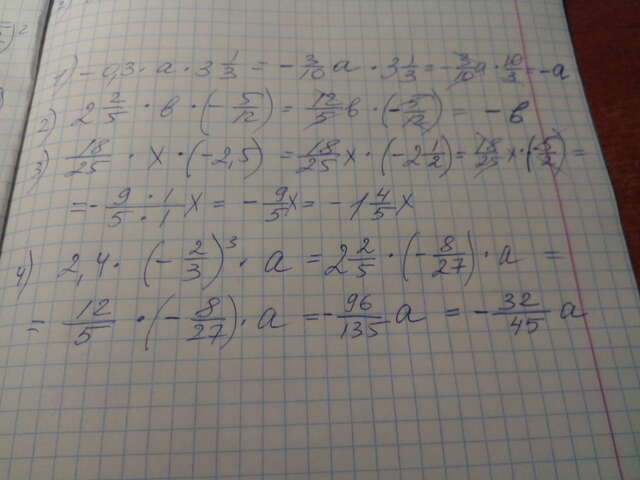 1) -0,3 · a · 3 1/3 = - 3/10 a · 3 1/3 = - 3/10 a · 10/3 = -a
2) 2 2/5 · в · (- 5/12) = 12/5 в · (- 5/12) = - в
3) 18/25 · x · (-2,5) = 18/25 x · (-2 1/2) = 18/25 x · (- 5/2) =
= - 9 · 1/5 · 1 x = - 9/5 x = - 1 4/5 x
4) 2,4 · (- 2/3)³ · a = 2 2/5 · (- 8/27) · a =
= 12/5 · (- 8/27) · a = - 96/135 a = - 32/45 a